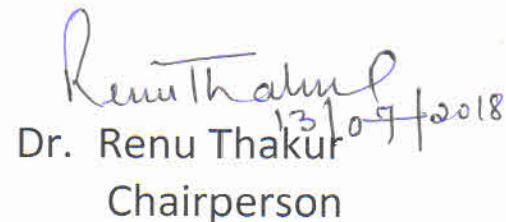 Renu Thakur
13/07/2018
Dr. Renu Thakur
Chairperson